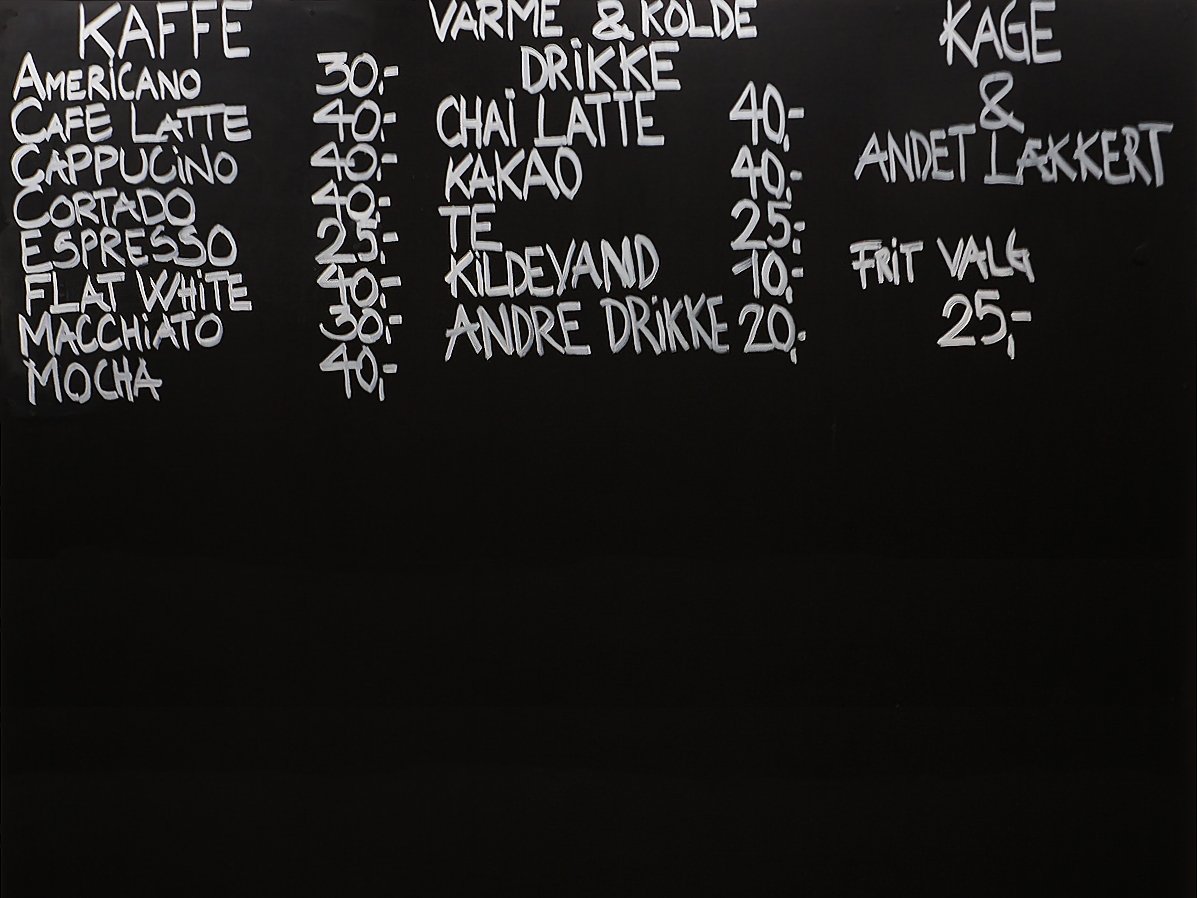 KAFFE
AMERiCANO 30,-
CAFE LATTE 40,-
CAPPUCiNO 40,-
CORTADO 40,-
ESPRESSO 25,-
FLAT WHiTE 40,-
MACCHiATO 30,-
MOCHA 40,-
VARME & KOLDE
DRiKKE
CHAi LATTE 40,-
KAKAO 40,-
TE 25,-
KiLDEVAND 10,-
ANDRE DRiKKE 20,-
KAGE
&
ANDET LÆKKERT
FRiT VALG
25,-